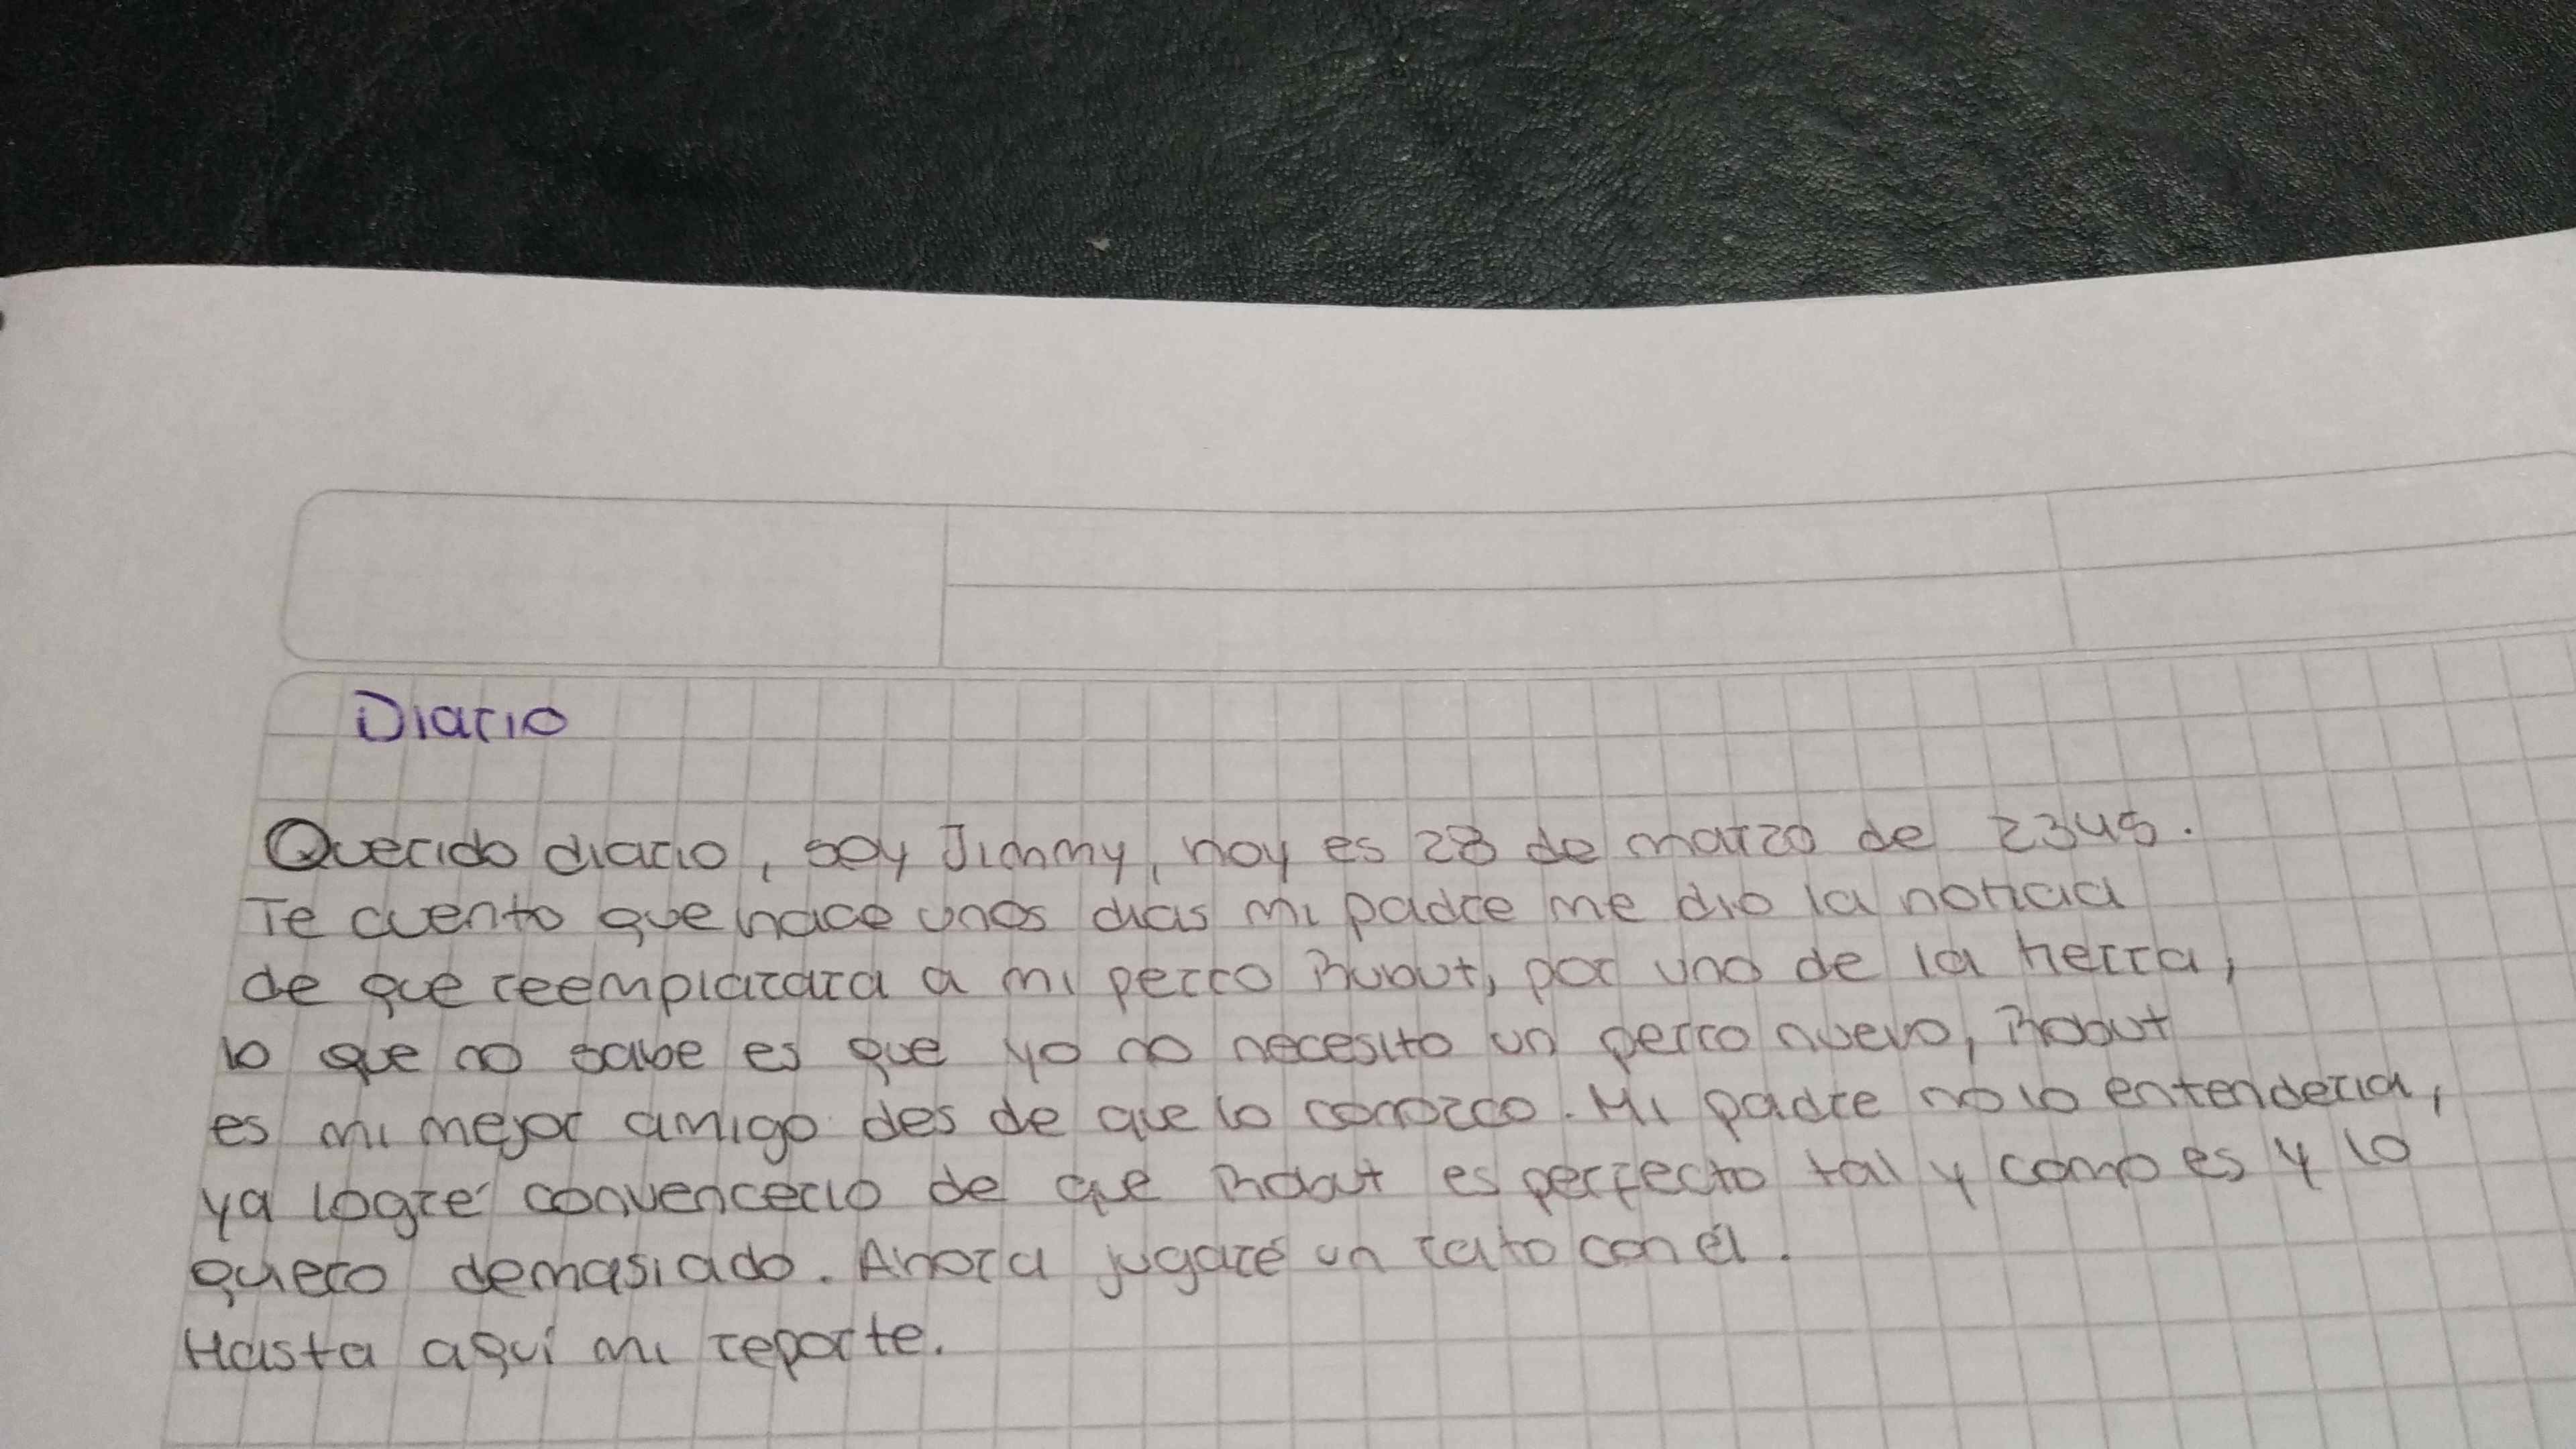 Diario
Querido diario, soy Jimmy, hoy es 28 de marzo de 2345.
Te cuento que hace unos dias mi padre me dio la noticia
de que reemplazara a mi perro Robut, por uno de la tierra,
lo que no sabe es que yo no necesito un perro nuevo, Robut
es mi mejor amigo des de que lo conozco. Mi padre no lo entenderia,
ya logré convencerlo de que Robut es perfecto tal y como es y lo
quiero demasiado. Ahora jugaré un rato con él.
Hasta aquí mi reporte.